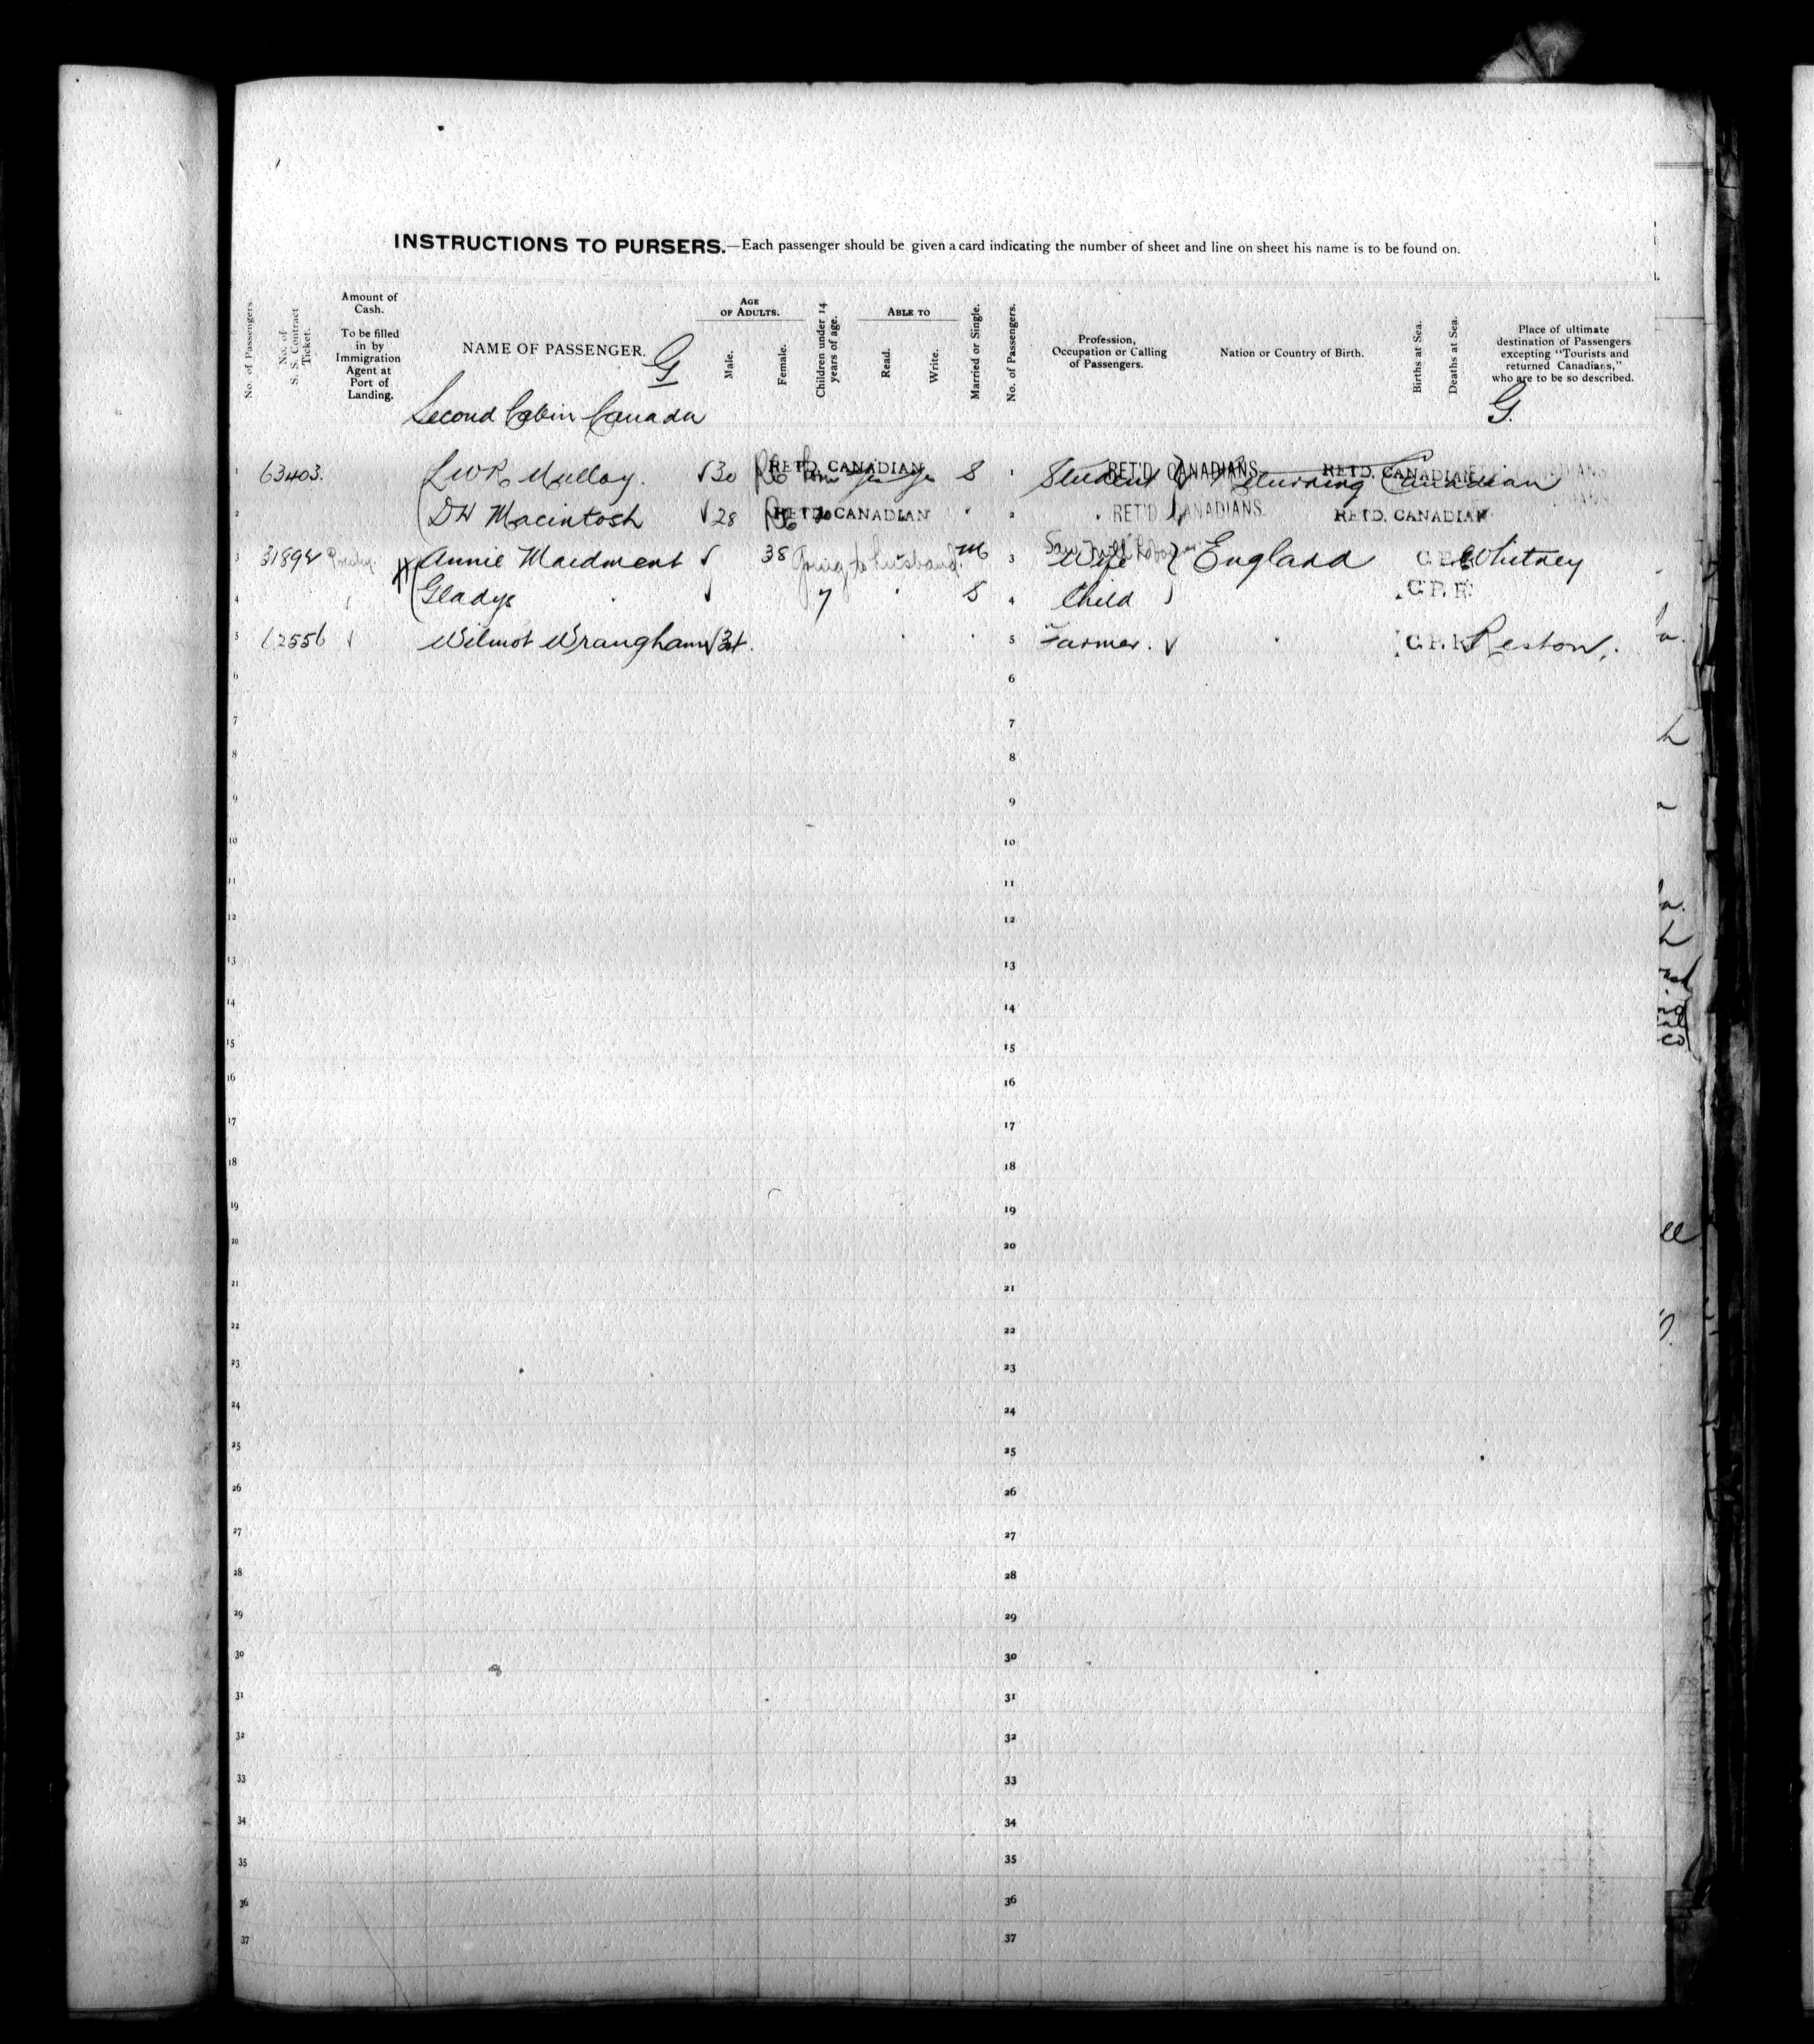 INSTRUCTIONS TO PURSERS.—Each passenger should be given a card indicating the number of sheet and line on sheet his name is to be found on.
No. of Passengers
No. of S. S. Contract Ticket.
Amount of Cash.
To be filled in by Immigration Agent at Port of Landing.
NAME OF PASSENGER. G
AGE OF ADULTS.
Male.
Female.
Children under 14 years of age.
ABLE TO
Read.
Write.
Married or Single.
No. of Passengers.
Profession, Occupation or Calling of Passengers.
Nation or Country of Birth.
Births at Sea.
Deaths at Sea.
Place of ultimate destination of Passengers excepting "Tourists and returned Canadians," who are to be so described.
G.
Second Cabin Canada
1 63403. LWR Mulloy. √30 RETD. CANADIAN S 1 Student RET'D CANADIANS Returning Canadian RETD. CANADIAN
2 DH Macintosh √28 RETD. CANADIAN " 2 " RET'D CANADIANS RETD. CANADIAN
3 31892 Annie Maidment √ 38 Going to husband. M 3 Wife } England C.P.R. Whitney
4 Gladys √ 7 " S 4 Child C.P.R.
5 62556 √ Wilmot Wrangham √ . " " 5 Farmer. √ " C.P.R. Reston.
6 6
7 7
8 8
9 9
10 10
11 11
12 12
13 13
14 14
15 15
16 16
17 17
18 18
19 19
20 20
21 21
22 22
23 23
24 24
25 25
26 26
27 27
28 28
29 29
30 30
31 31
32 32
33 33
34 34
35 35
36 36
37 37